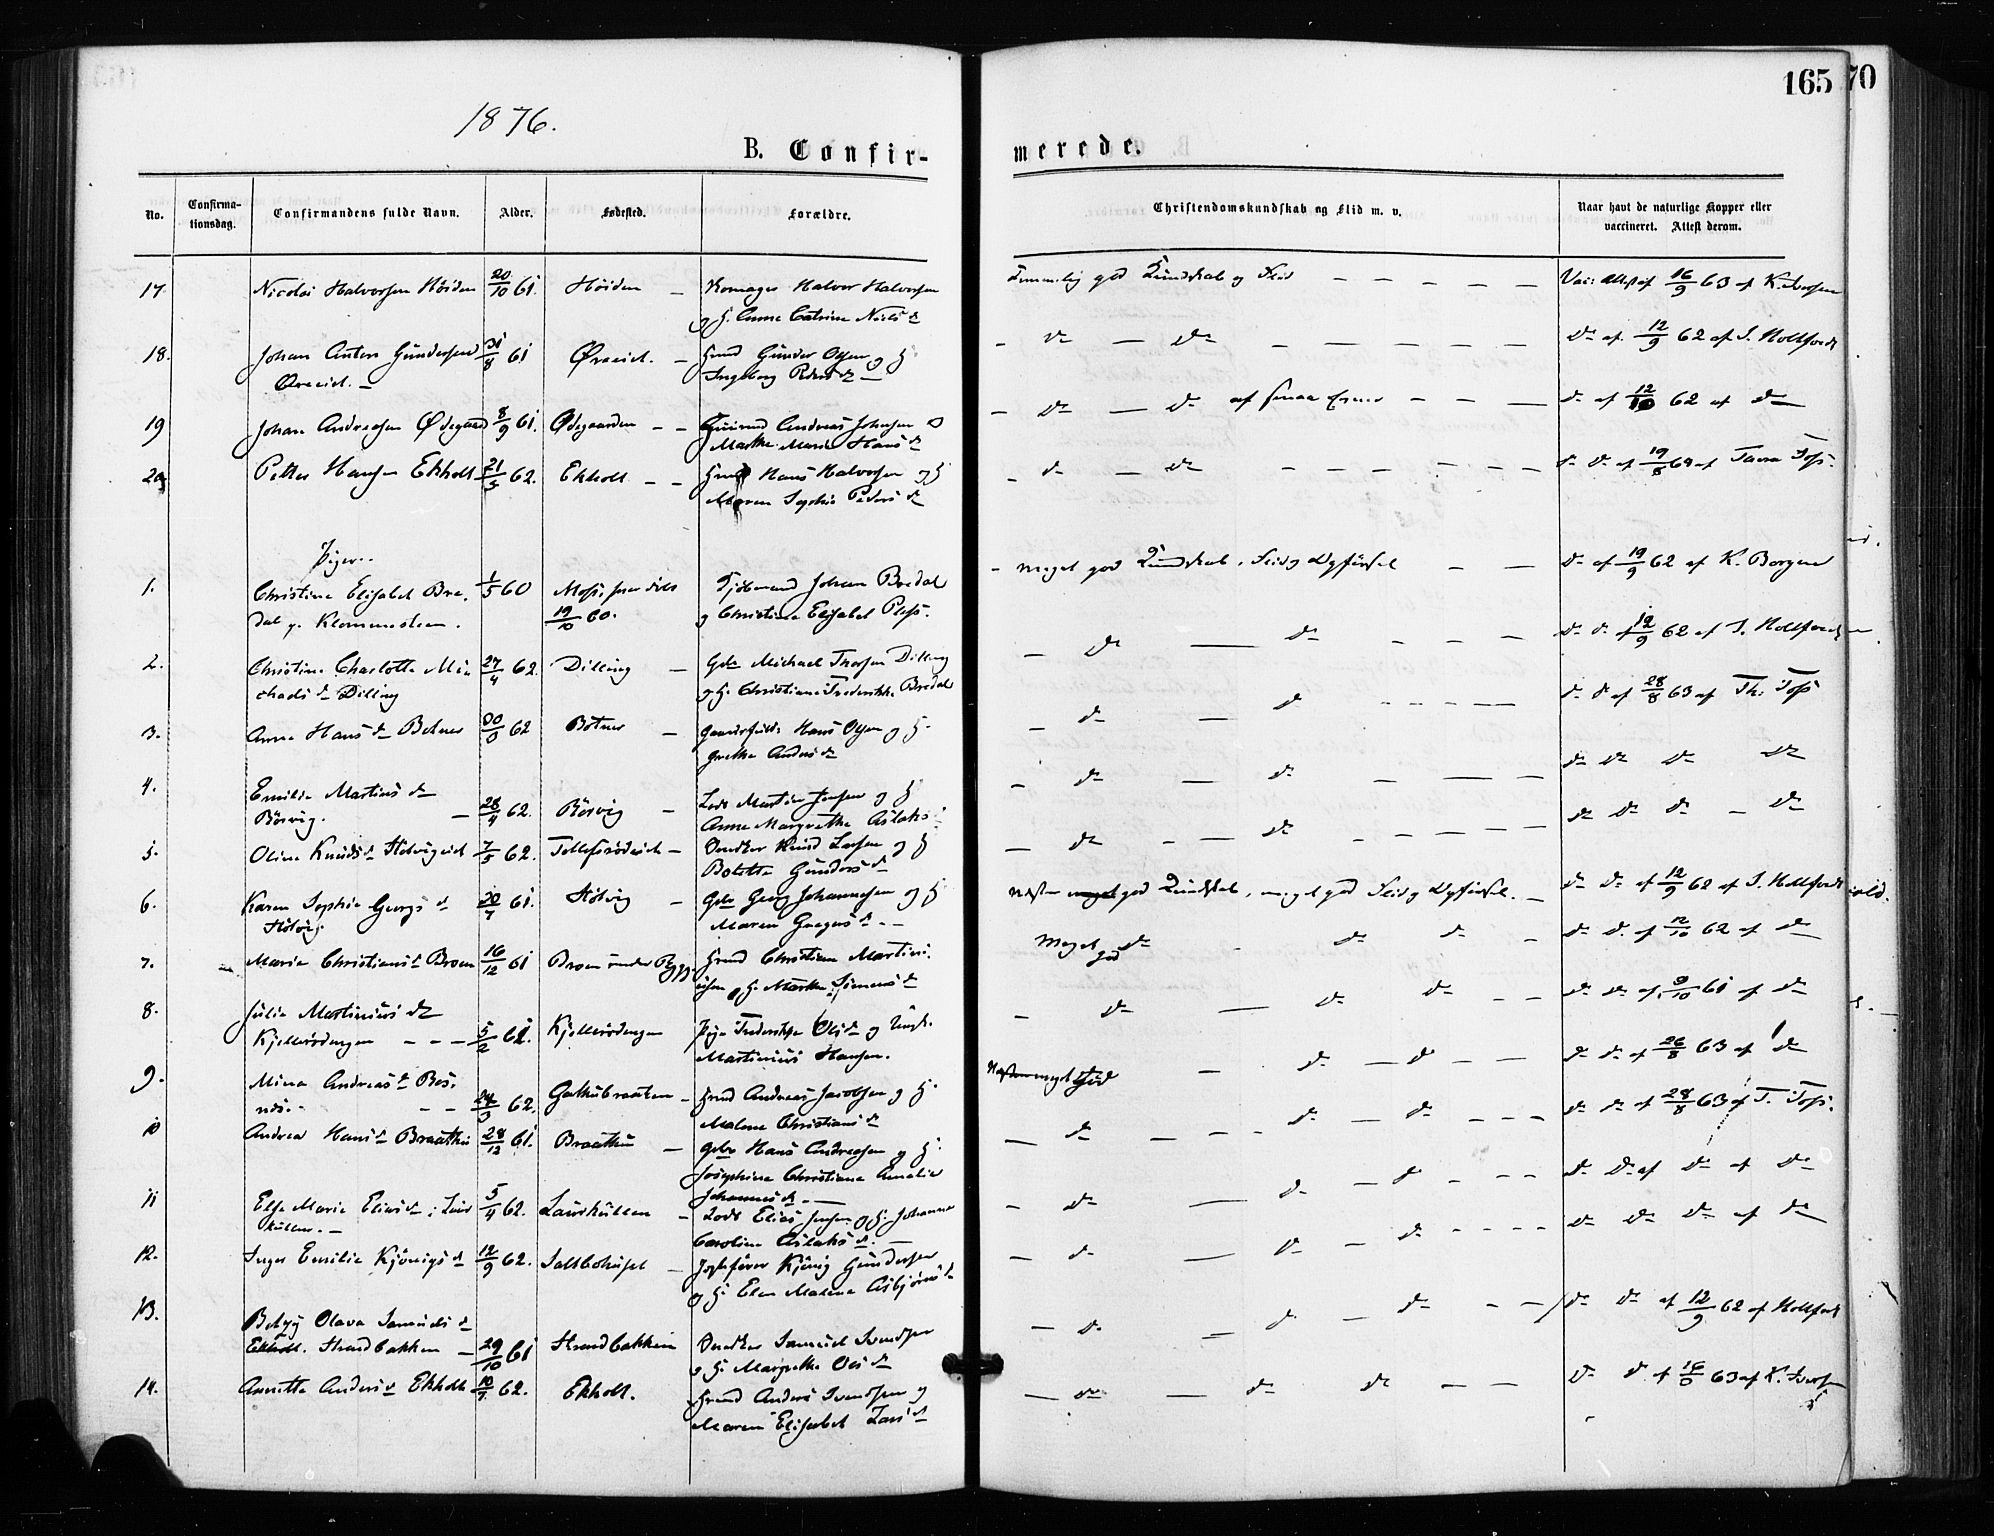 165
70
1876.
B. Confir-
merede.
No.
Confirma-
tionsdag.
Confirmandens fulde Navn.
Alder.
Fødested.
Forældre.
Christendomskundskab og Flid m. v.
Naar havt de naturlige Kopper eller
vaccineret. Attest derom.
17. Nicolai Halvorsen Höiden 20/10 61. Höiden — Halvor Halvorsen
og H. Anne Catrine Niels d.
Temmelig god Kundskab og Flid — — — — — Vac: Attest af 16/9 63 af K. Iversen
18. Johan Anton Gundersen 31/8 61 Ørneid. — Hmd Gunder Olsen og H
Ørneid. — Ingeborg Peders d. —
— do — do — — — — — do af 12/9 62 af J. Holtfodt
19 Johan Andreasen Ødegaard 8/9 61. Ödegaarden — — Andreas Johnsen &
Marthe Marie Hans d.
— do — do — — do af 12/10 62 af do
20 Petter Hansen Ekholt 21/5 62. Ekholt — — Hmd Hans Halvorsen og H
Maren Sophie Peders d.
— do — do — — — — — do do af 19/8 64 af Foss.
Piger.
1. Christine Elisabet Bre- 1/5 60 Moss. 
dal g. Klommesteen. 19/10 60.
Johan Bredal
og Christiane Elisabet Pless.
— Meget god Kundskab, Flid og Opførsel — — do af 19/9 62 af K. Borgen
2. Christine Charlotte Mi- 27/4 62. Dilling — Gbr Michael Thorsen Dilling
chaels d. Dilling og H. Christiane Frederikke Bredal
— do — do — — — do do af 12/9 62 af J. Holtfodt
3. Anne Hans d. Botner 62 Botner — Hans Olsen og H.
Grethe Anders d.
— do — do — — — — — do do af 28/8 63 af Th: Foss
4. Emilie Martins d.
Börvig. — 28/4 62. Börvig — Lods Martin Jensen og H
Anne Margrethe Aslaks
— do — do — — — do do do do
5. Oline Knuds d. 7/5 62. — Snedker Knud Larsen og H
Bolette Gunders d.
— do — do — — — — do do do — do
6. Karen Sophie Georgs d. 61. Hölvig — Gbr Georg Johannesen og H
Hölvig. Maren Gregers d. —
Næsten meget god Kundskab, meget god Flid og Opførsel. — do do af 12/9 62 af J. Holtfodt
7. Marie Christians d. Broen 16/12 61 Broen under Rygge Hmd Christian Martini-
usen og H. Marthe Simens d.
Meget god do — do do — do do af 12/10 62 af do
8. Julie Martinius d.
Kjellerödengen — — — 5/2 62. Kjellerödengen Pige Frederikke Ols d. og Ungk.
Martinius Hansen.
— do — do do — — do do af 9/10 61 af do
9. Mina Andreas d.
— — 24/3 62. Gathubraaten — Hmd Andreas Jacobsen og H.
Malene Christians d.
Næsten meget God — do — do — — do do af 26/8 63 af do
10 Andrea Hans d. Braathen 28/12 61. Braathen — Gbr Hans Andreasen og H.
Josephine Christiane Amalie
Johannes d. —
— do — — — do — do — — — do do af 28/8 63 af T. Foss.
11 Else Marie Elias d. Laur 5/4 62. Laurkullen — Lods Elias Jensen og H. Johanne
kullen. — Caroline Aslaks d. —
— do — do — do — — do do af do af do
12. Inger Emilie Kjönigs d 12/9 62. Saltbohuset — Kjönig Gundersen
og H. Elen Malene Asbjörns d.
— do — do — do — — — do do do af do
13. Betzy Olava Samuels d
Ekholt. Strandbakken — 29/10 61 Strandbakken Snedker Samuel Svendsen
og H. Margrethe Ols d.
— do. — do — do — — do do af 12/9 62 af Holtfodt
14. Annette Anders d Ekholt 62. Ekholt. Hmd Anders Svendsen og
Maren Elisabet Lars d
— do — do do — — do do af 63 af K. Iversen